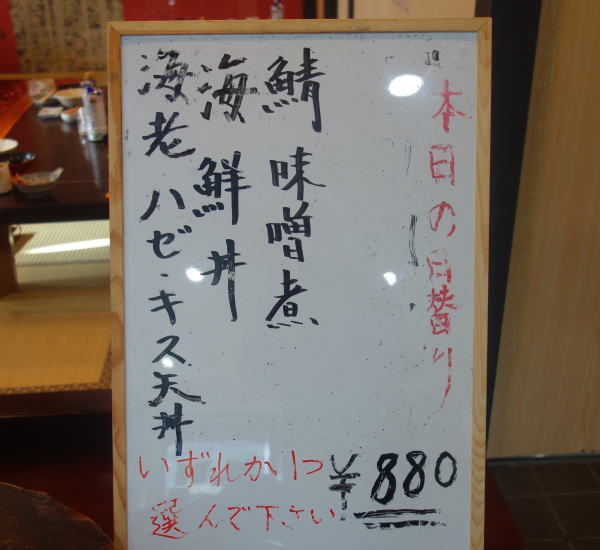 本日の日替り
鯖味噌煮
海鮮丼
海老ハゼ・キス天丼
¥880
いずれか1つ
選んで下さい